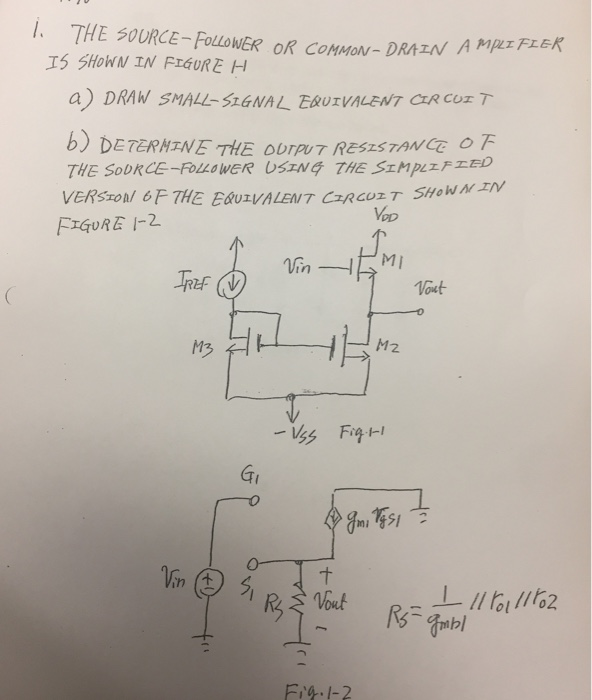 1. THE SOURCE-FOLLOWER OR COMMON-DRAIN AMPLIFIER
IS SHOWN IN FIGURE 1-1
a) DRAW SMALL-SIGNAL EQUIVALENT CIRCUIT
b) DETERMINE THE OUTPUT RESISTANCE OF
THE SOURCE-FOLLOWER USING THE SIMPLIFIED
VERSION OF THE EQUIVALENT CIRCUIT SHOWN IN
FIGURE 1-2
VDD
Vin M1
IREF Vout
M3 M2
-VSS Fig. 1-1
G1
gm1 vgs1
Vin + S1 RS + Vout -
RS = 1/gmb1 // ro1 // ro2
Fig. 1-2